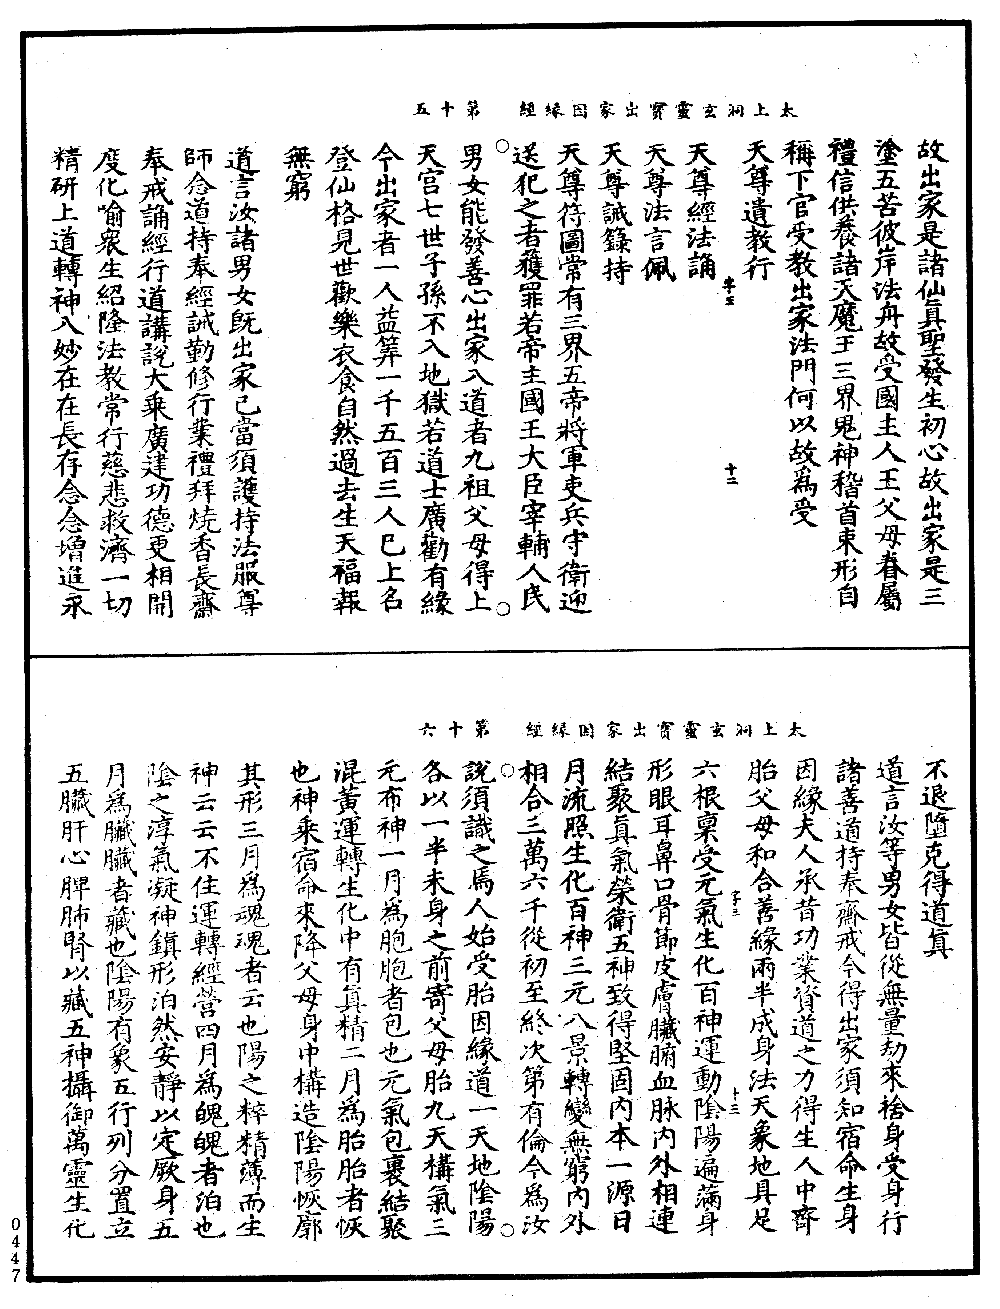 太上洞玄靈寶出家因緣經　第十五
故出家是諸仙真聖發生初心故出家是三
塗五苦彼岸法舟故受國主人王父母眷屬
禮信供養諸天魔王三界鬼神稽首束形自
稱下官受教出家法門何以故爲受
天尊遺教行
天尊經法誦
天尊法言佩
天尊誡籙持
天尊符圖常有三界五帝將軍吏兵守衛迎
送犯之者獲罪若帝主國王大臣宰輔人民
男女能發善心出家入道者九祖父母得上
天官七世子孫不入地獄若道士廣勸有緣
令出家者一人益筭一千五百三人已上名
登仙格見世歡樂衣食自然過去生天福報
無窮
道言汝諸男女既出家已當須護持法服尊
師念道持奉經誡勤修行業禮拜燒香長齋
奉戒誦經行道講說大乘廣建功德更相開
度化喻衆生紹隆法教常行慈悲救濟一切
精研上道轉神入妙在在長存念念增進永
十二
太上洞玄靈寶出家因緣經　第十六
不退墮克得道真
道言汝等男女皆從無量劫來捨身受身行
諸善道持奉齋戒今得出家須知宿命生身
因緣夫人承昔功業資道之力得生人中齊
胎父母和合善緣兩半成身法天象地具足
六根稟受元氣生化百神運動陰陽遍滿身
形眼耳鼻口骨節皮膚臟腑血脉內外相連
結聚真氣榮衛五神致得堅固內本一源日
月流照生化百神三元八景轉變無窮內外
相合三萬六千從初至終次第有倫今爲汝
說須識之焉人始受胎因緣道一天地陰陽
各以一半未身之前寄父母胎九天構氣三
元布神一月爲胞胞者包也元氣包裹結聚
混黃運轉生化中有真精二月爲胎胎者恢
也神乘宿命來降父母身中構造陰陽恢廓
其形三月爲魂魂者云也陽之粹精薄而生
神云云不住運轉經營四月爲魄魄者泊也
陰之淳氣凝神鎮形泊然安靜以定厥身五
月爲臟臟者藏也陰陽有象五行列分置立
五臟肝心脾肺腎以藏五神攝御萬靈生化
十三
0447